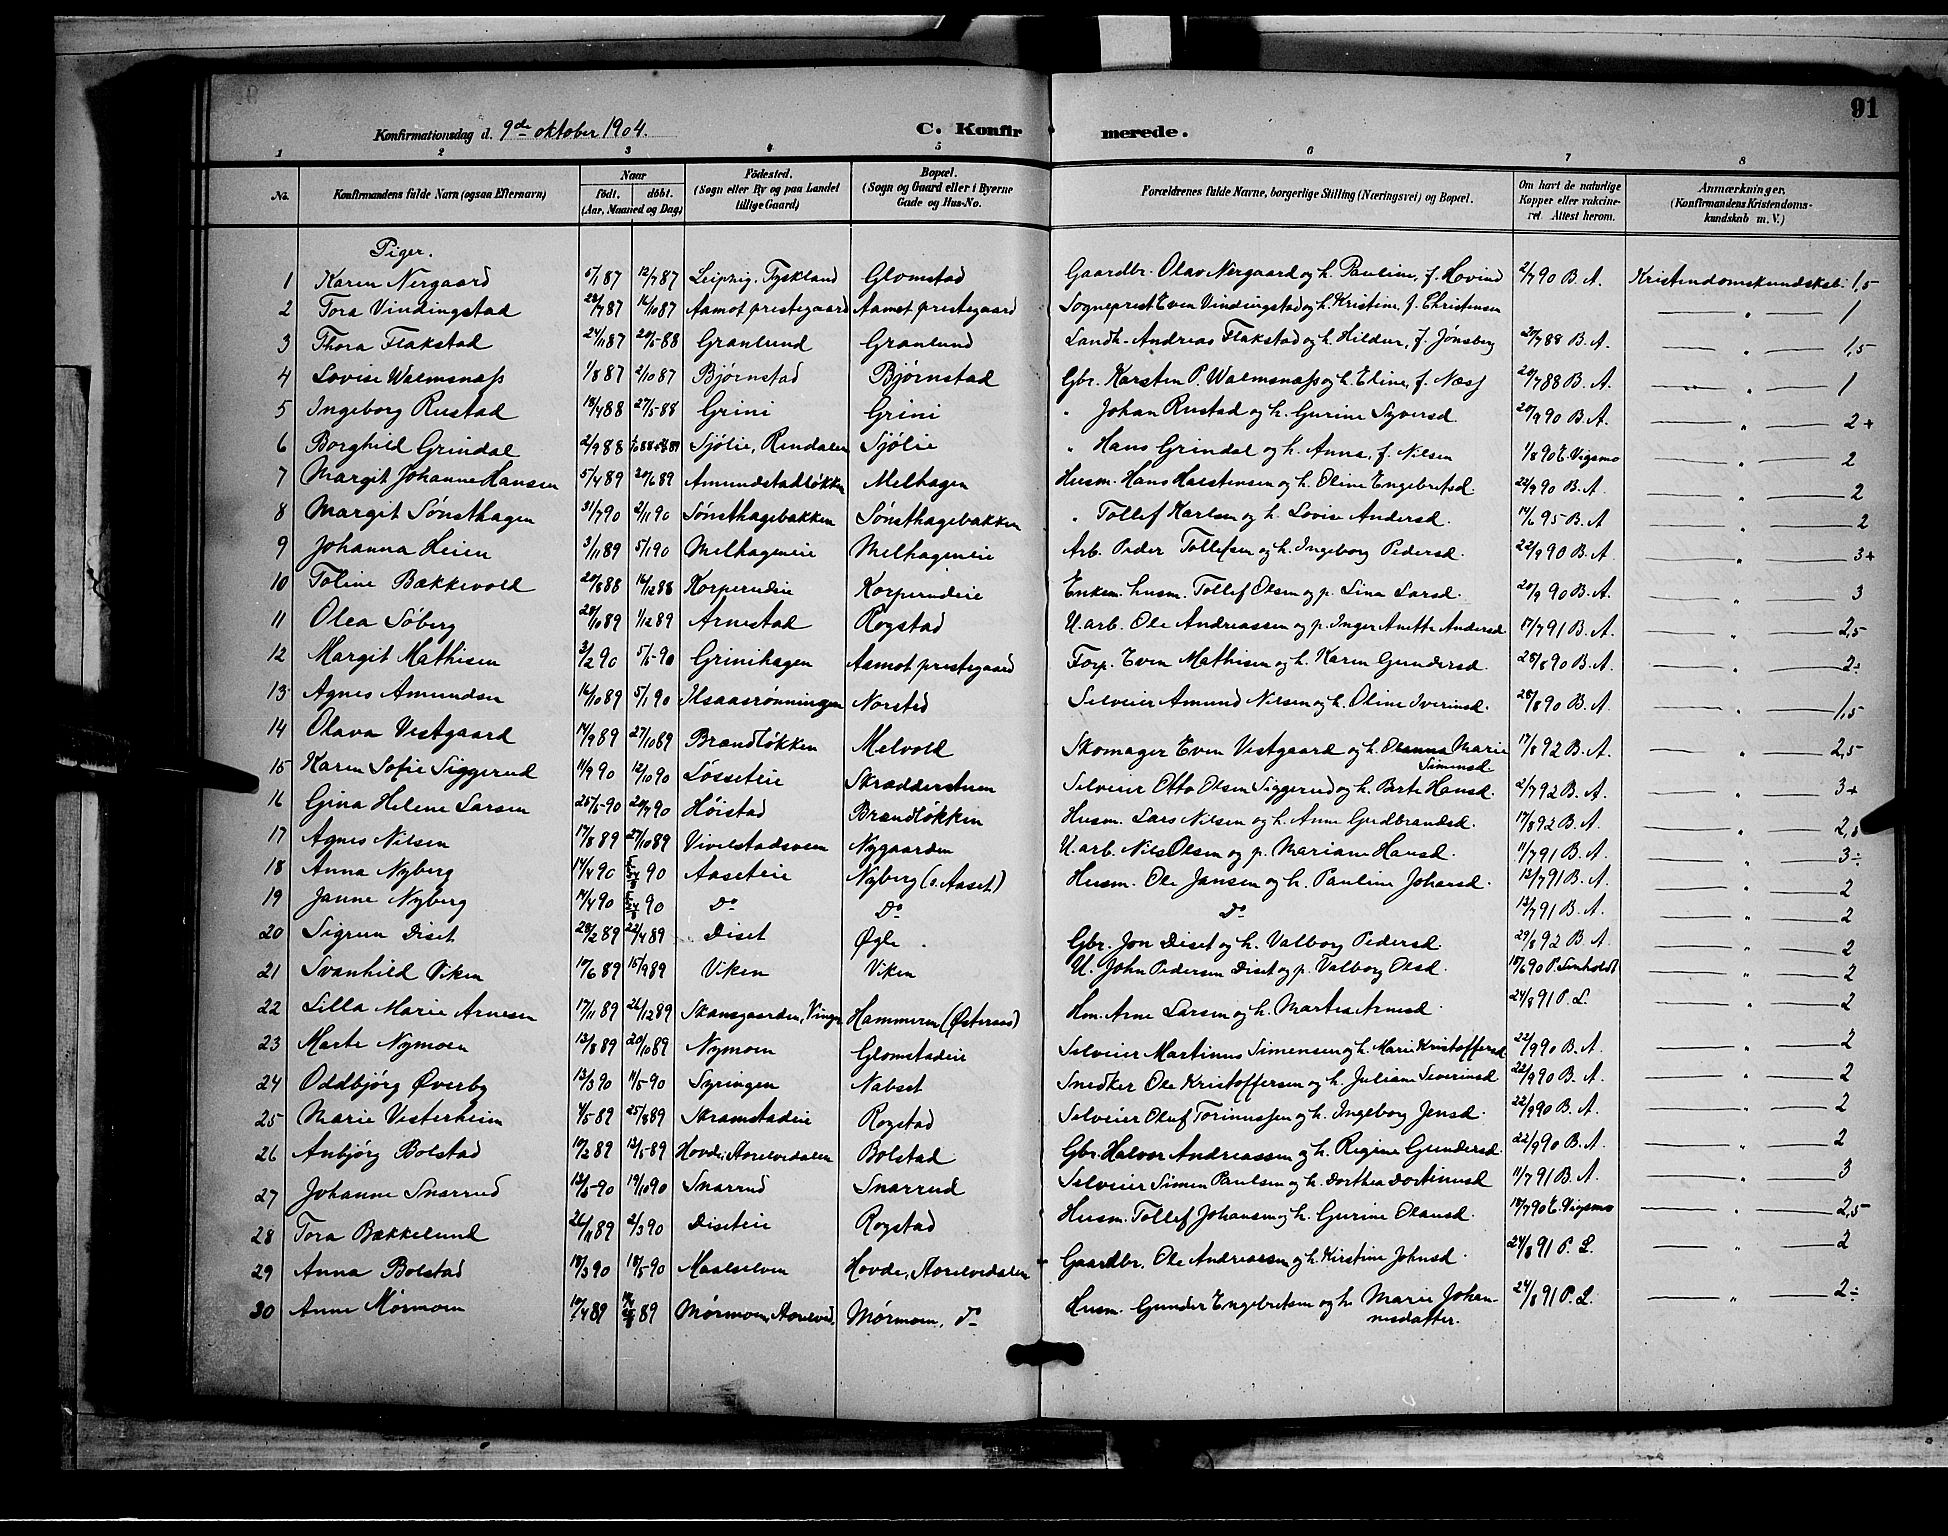 91
Konfirmationsdag d. 9de oktober 1904.
C. Konfirmerede.
1 2 3 4 5 6 7 8
No.
Konfirmandens fulde Navn (ogsaa Efternavn)
Naar
födt. döbt.
(Aar, Maaned og Dag)
Födested.
(Sogn eller By og paa Landet
tillige Gaard)
Bopæl.
(Sogn og Gaard eller i Byerne
Gade og Hus-No.
Forældrenes fulde Navne, borgerlige Stilling (Næringsvei) og Bopæl.
Om havt de naturlige
Kopper eller vakcine-
ret. Attest herom.
Anmærkninger.
(Konfirmandens Kristendoms-
kundskab m. V.)
Piger.
1 Karen Nergaard 5/1 87 12/7 87 Leipzig, Tyskland Glomstad Gaardbr. Olav Nergaard og h. Pauline, f. Hovind 2/7 90 B. A. Kristendomskundskab: 1,5
2 Tora Vindingstad 28/7 87 16/10 87 Aamot prestegaard Aamot prestegaard Sogneprest Even Vindingstad og h. Kristine, f. Christensen — " — 1
3 Thora Flakstad 24/11 87 20/5-88 Granlund Granlund Landh. Andreas Flakstad og h. Hildur, f. Jønsberg 20/7 88 B. A. — " — 1,5
4 Lovise Walmsnæss 1/8 87 2/10 87 Bjørnstad Bjørnstad Gbr. Karsten P. Walmsnæss og h. Eline, f. Næss 20/7 88 B. A. — " — 1
5 Ingeborg Rustad 18/4 88 27/5-88 Grini Grini " Johan Rustad og h. Gurine Syversd. 20/9 90 B. A. — " — 2+
6 Borghild Grindal 2/9 88 Sjølie, Rendalen Sjølie " Hans Grindal og h. Anna, f. Nilsen 1/8 90 E. Vigsmo — " — 2
7 Margit Johanne Hansen 5/4 89 20/6 89 Amundstadløkken Melhagen Husm. Hans Karstensen og h. Oline Engebretsd. 22/9 90 B. A. — " — 2
8 Margit Sønsthagen 31/7 90 2/11 90 Sønsthagebakken Sønsthagebakken " Tollef Karlsen og h. Lovise Andersd. 14/6 95 B. A — " — 2
9 Johanna Heien 3/11 89 5/1 90 Melhageneie Melhageneie Arb. Peder Tollefsen og h. Ingeborg Pedersd. 22/9 90 B. A. — " — 3+
10 Toline Bækkevold 20/8 88 16/12 88 Korperudeie Korperudeie Enkem. husm. Tollef Olsen og p. Lina Larsd. 20/9 90 B. A. — " — 3
11 Olea Søberg 28/10 89 1/12 89 Arnestad Rogstad U. arb. Ole Andreassen og p. Inger Anette Andersd 17/7 91 B. A. — " — 2,5
12 Margit Mathisen 3/2 90 5/5-90 Grinihagen Aamot prestegaard Forp. Even Mathisen og h. Karen Gundersd. 28/8 90 B. A. — " — 2÷
13 Agnes Amundsen 16/10 89 5/1 90 Ilsaasrønningen Norsted Selveier Amund Nilsen og h. Oline Iverinsd. 28/8 90 B. A. — " — 1,5
14 Olava Vestgaard 14/9 89 27/10 89 Brændløkken Melvold Skomager Even Vestgaard og h. Oleanna Marie Simensd. 17/8 92 B. A. — " — 2,5
15 Karen Sofie Siggerud 11/9 90 12/10 90 Løsseteie Skrædderstuen Selveier Otto Olsen Siggerud og h. Berte Hansd. 2/7 92 B. A. — " — 3+
16 Gina Helene Larsen 25/5-90 20/7 90 Høistad Brændløkken Husm. Lars Nilsen og h. Anne Gudbrandsd. 17/8 92 B. A. — " — 2,5
17 Agnes Nilsen 17/8 89 27/10 89 Vivelstadsveen Nygaarden U. arb. Nils Olsen og p. Mariane Hansd. 11/7 91 B. A. — " — 3÷
18 Anna Nyberg 14/4 90 90 Aaseteie Nyberg (s. Aaset) Husm. Ole Jansen og h. Pauline Johansd. 12/7 91 B. A. — " — 2
19 Janne Nyberg 14/4 90 90 Do Do Do 12/7 91 B. A. — " — 2
20 Sigrun Diset 28/2 89 22/4 89 Diset Øgle . Gbr. Jon Diset og h. Valborg Pedersd. 29/8 92 B. A. — " — 2
21 Svanhild Viken 10/6 89 15/9 89 Viken Viken U. John Pedersen Diset og p. Valborg Olsd. 18/6 90 P. — " — 2
22 Lilla Marie Arnesen 17/11 89 26/12 89 Skansgaarden, Vinger Hammeren (Østeraas) Hm. Arne Larsen og h. Martea Arnesd. 24/8 91 P. L. — " — 2
23 Marte Nymoen 13/8 89 20/10 89 Nymoen Glomstadeie Selveier Martinus Simensen og h. Marie Kristoffersd 22/9 90 B. A. — " — 2
24 Oddbjørg Øverby 13/3 90 11/5-90 Syringen Nabset Snedker Ole Kristoffersen og h. Juliane Severinsd 22/9 90 B. A. — " — 2
25 Marie Vesterheim 4/5 89 25/8 89 Skramstadeie Rogstad Selveier Oluf Torinussen og h. Ingeborg Jensd. 22/9 90 B. A. — " — 2
26 Anbjørg Bolstad 10/2 89 12/5-89 Hovde, Aorelvedalen Bolstad Gbr. Halvor Andreassen og h. Regine Gundersd. 22/9 90 B. A. — " — 2
27 Johanne Snarrud 13/5-90 19/10 90 Snarrud Snarrud Selveier Simen Paulsen og h. Dorthea Dortinusd 11/7 91 B. A — " — 3
28 Tora Bækkelund 26/11 89 2/3 90 Diseteie Rogstad Husm. Tollef Johansen og h. Gurine Olausd. 18/7 90 E. Vigsmo — " — 2,5
29 Anna Bolstad 18/3 90 18/5-90 Maalselven Hovde, Aorelvedalen Gaardbr. Ole Andreassen og h. Kirstine Johnsd. 24/8 91 P. L. — " — 2
30 Anne Mørmoen 10/4 89 89 Mørmoen, Aorelved. Mørmoen, do Husm. Gunder Engebretsen og h. Marie Johan-
nesdatter. 24/8 91 P. L. — " — 2÷